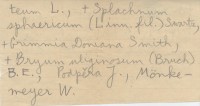 teum L., + Splachnum
sphaericum (Linn. fil) Swartz,
+ Grimmia Doniana Smith,
+ Bryum uliginosum (Bruch)
B.E., Podpěra J., Mönke-
meyer W.